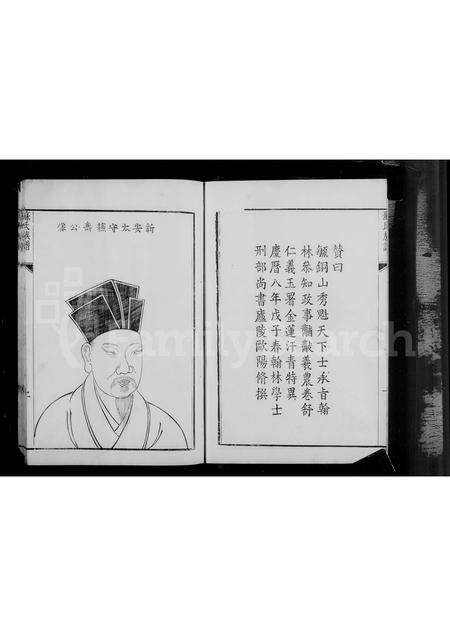 贊曰
毓銅山秀魁天下士承旨翰
林叅知政事黼黻羲農卷舒
仁義玉署金蓮汗青特異
慶曆八年戊子春翰林學士
刑部尚書廬陵歐陽脩撰
新安太守
公像
氏族譜